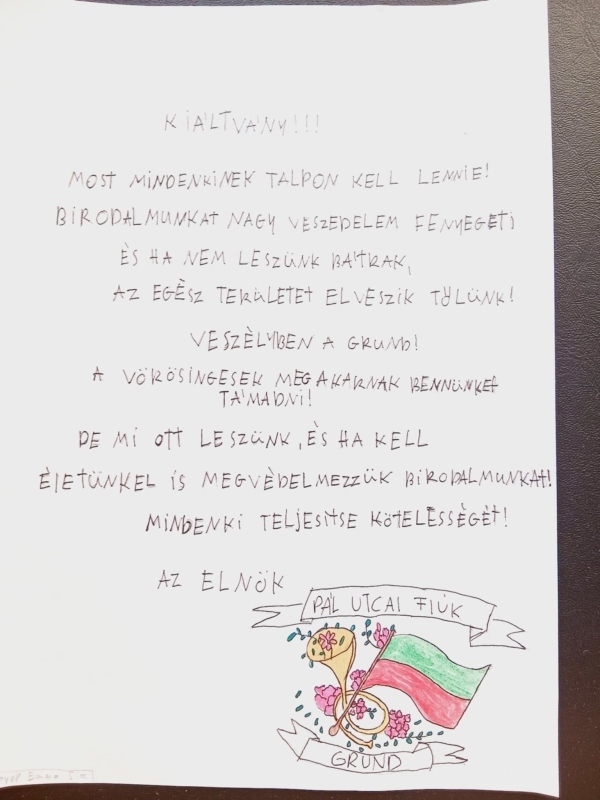 KIÁLTVÁNY!!!
MOST MINDENKINEK TALPON KELL LENNIE!
BIRODALMUNKAT NAGY VESZEDELEM FENYEGETI
ÉS HA NEM LESZÜNK BÁTRAK,
AZ EGÉSZ TERÜLETET ELVESZIK TŐLÜNK!
VESZÉLYBEN A GRUND!
A VÖRÖSINGESEK MEGAKARNAK BENNÜNKET
TÁMADNI!
DE MI OTT LESZÜNK, ÉS HA KELL
ÉLETÜNKEL IS MEGVÉDELMEZZÜK BIRODALMUNKAT!
MINDENKI TELJESÍTSE KÖTELESSÉGÉT!
AZ ELNÖK
PÁL UTCAI FIÚK
GRUND